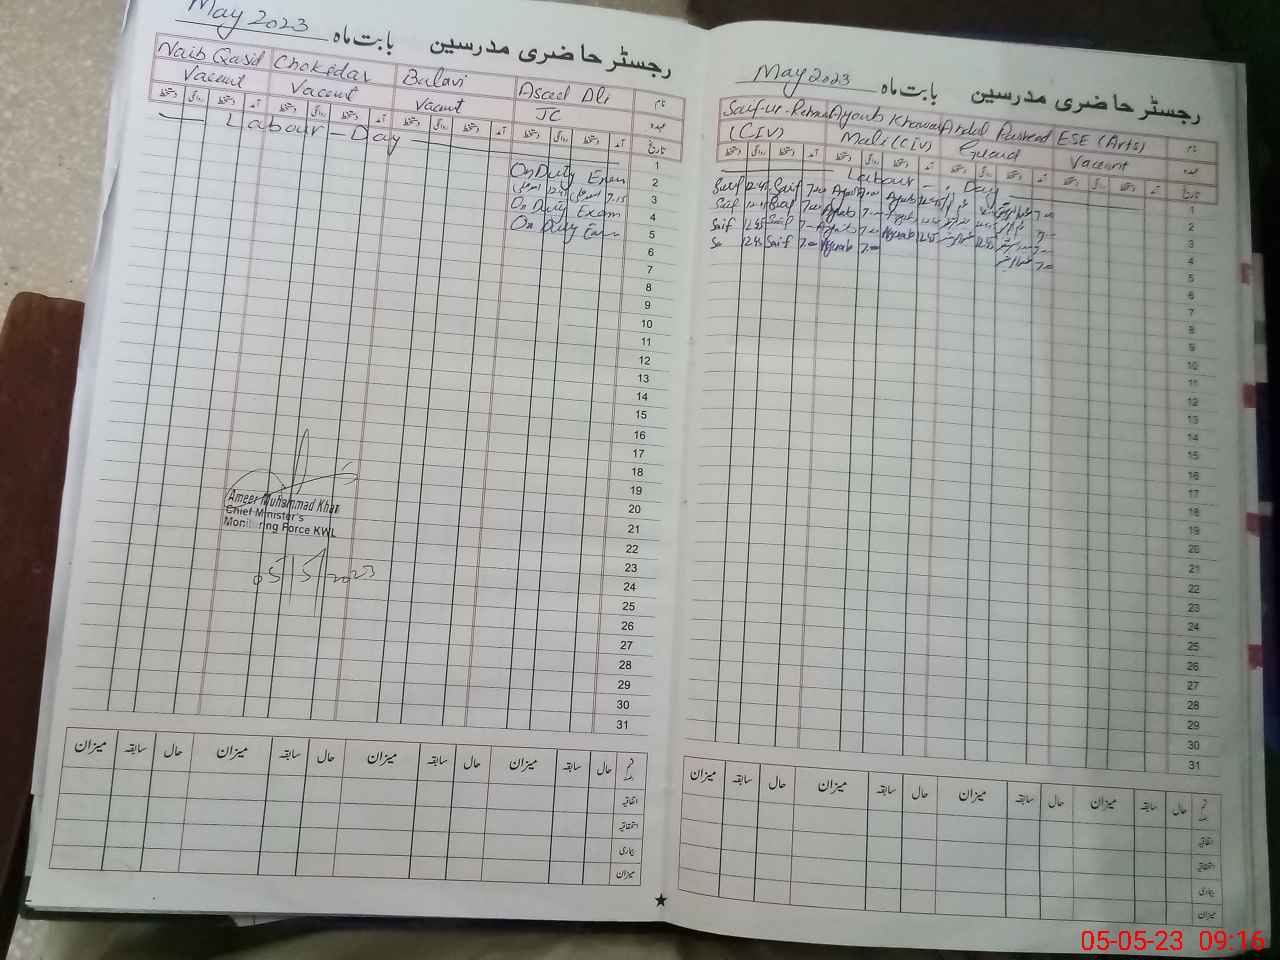 May 2023
رجسٹر حاضری مدرسین بابت ماہ
Naib Qasid Chokidar Balavi Asad Ali نام
Vacent Vacent Vacent JC عہدہ
تاریخ
Labour - Day 1
On Duty Exam 2
7.15 3
On Duty Exam 4
On Duty Exam 5
6
7
8
9
10
11
12
13
14
15
16
17
18
19
20
21
22
23
24
25
26
27
28
29
30
31
Ameer Muhammad Khan
Chief Minister's
Monitoring Force KWL
05/5/2023
میزان سابقہ حال میزان سابقہ حال میزان سابقہ حال میزان سابقہ حال
اتفاقیہ
استحقاقیہ
بیماری
میزان
★
رجسٹر حاضری مدرسین بابت ماہ May 2023
Saif-ur-Rehman Ayoub Khawar Abdul Rasheed ESE (Arts) نام
(CIV) Mali (CIV) Guard Vacent عہدہ
تاریخ
Labour - Day 1
Saif 12.45 Saif 7.00 Ayoub 7.00 Ayoub 12.45 7.00 2
Saif 12.45 Saif 7.00 Ayoub 7.00 Ayoub 3
Saif 12.45 Saif 7.00 Ayoub 7.00 Ayoub 12.45 12.45 4
Sa 12.45 Saif 7.00 Ayoub 7.00 7.00 5
6
7
8
9
10
11
12
13
14
15
16
17
18
19
20
21
22
23
24
25
26
27
28
29
30
31
میزان سابقہ حال میزان سابقہ حال میزان سابقہ حال میزان سابقہ حال
اتفاقیہ
استحقاقیہ
بیماری
میزان
05-05-23 09:16